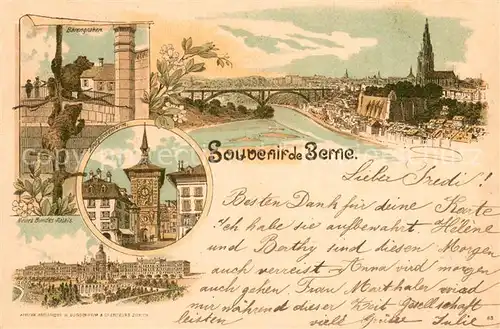 Bärengraben
Souvenir de Berne.
Neues Bundes-Palais
Lieber Fredi!
Besten Dank für deine Karte
Ich habe sie aufbewahrt. Hélène
und Berthy sind diesen Morgen
auch verreist Anna wird morgen
auch gehen. Frau Marthaler wird
mir während dieser Zeit Gesellschaft
leisten viele Grüße Julie